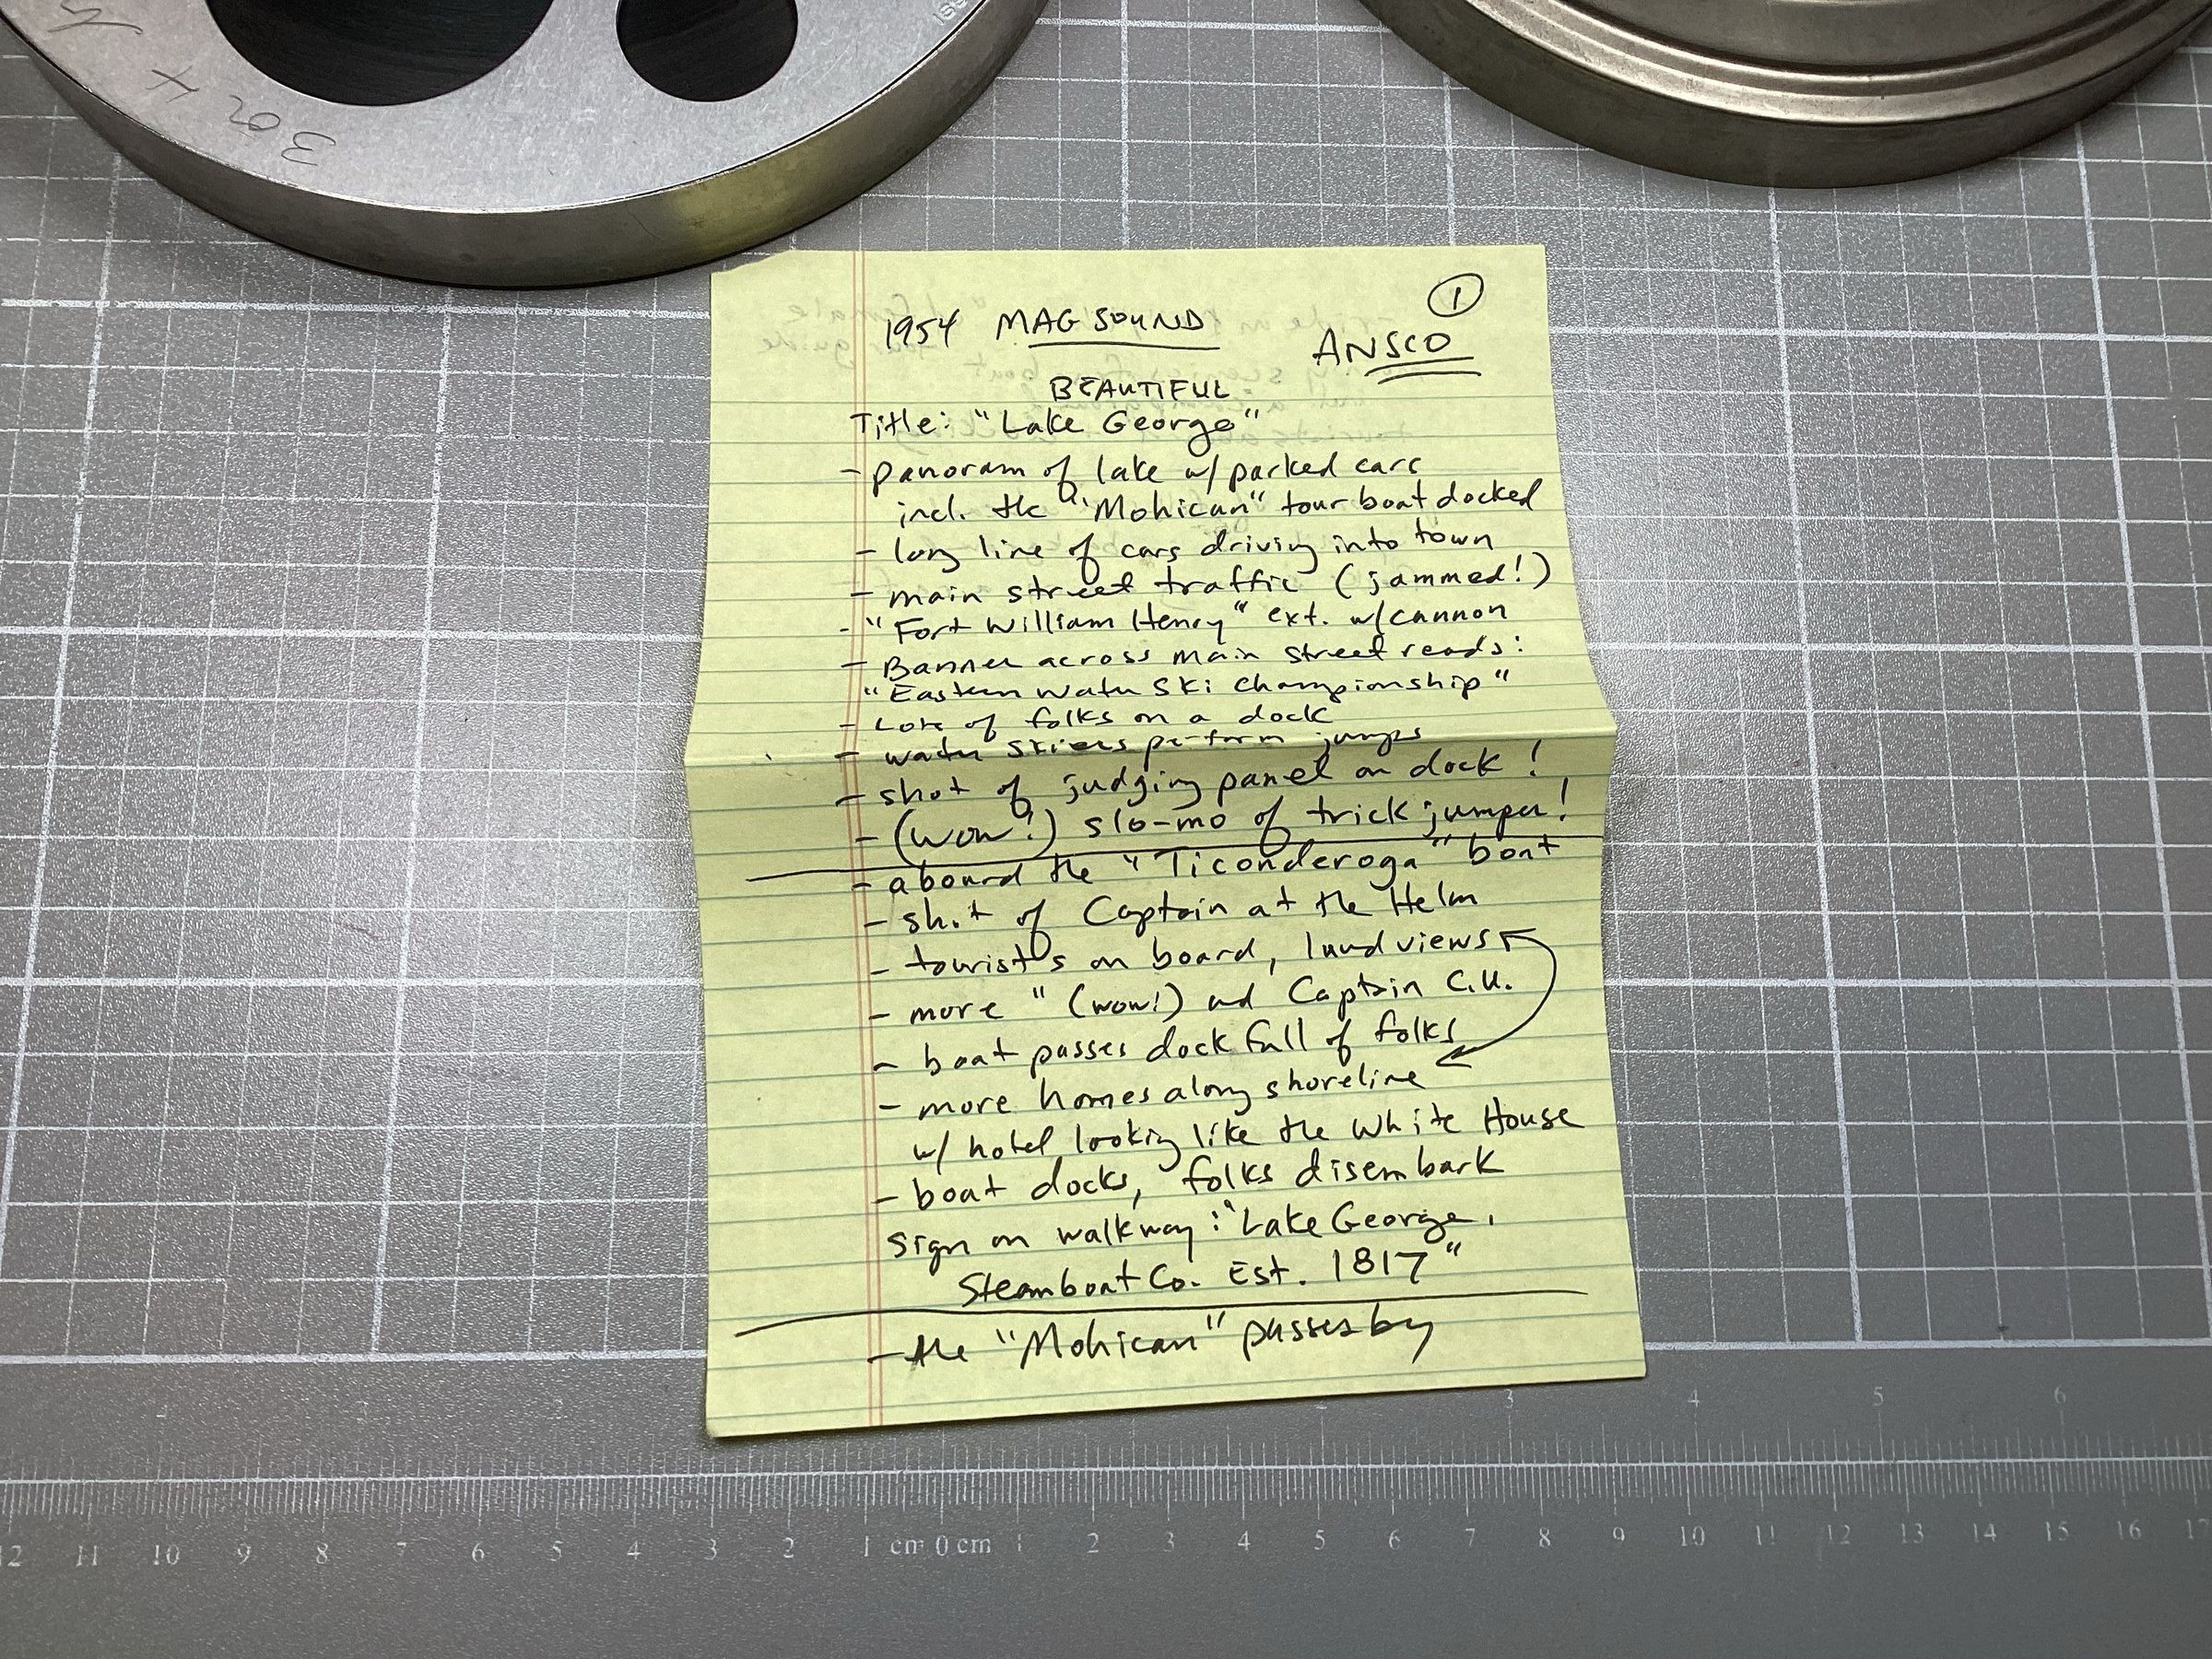 302 4
1954 MAG SOUND
①
ANSCO
BEAUTIFUL
Title: "Lake George"
- panoram of lake w/ parked cars
incl. the "Mohican" tour boat docked
- long line of cars driving into town
- main street traffic (jammed!)
- "Fort William Henry" ext. w/cannon
- Banner across main street reads:
"Eastern Water Ski Championship"
- Lots of folks on a dock
- water skiers perform jumps
- shot of judging panel on dock!
- (wow!) slo-mo of trick jumper!
- aboard the "Ticonderoga" boat
- shot of Captain at the Helm
- tourists on board, land views
- more " (wow!) and Captain C.U.
- boat passes dock full of folks
- more homes along shoreline
w/ hotel looking like the White House
- boat docks, folks disembark
sign on walkway: "Lake George
Steamboat Co. Est. 1817"
- the "Mohican" passes by
3 4 5 6
12 11 10 9 8 7 6 5 4 3 2 1 cm 0 cm 1 2 3 4 5 6 7 8 9 10 11 12 13 14 15 16 17